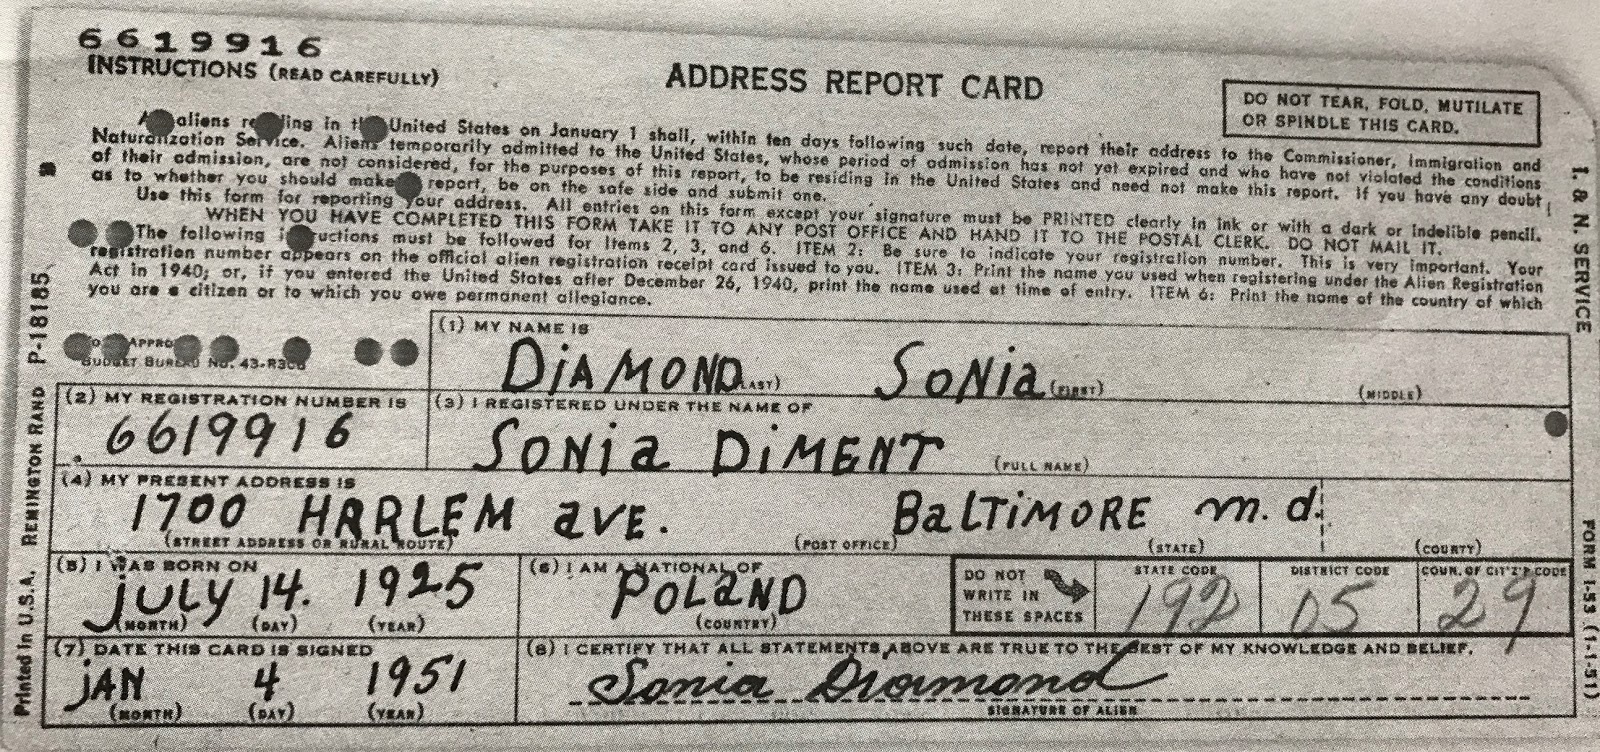 6619916
INSTRUCTIONS (READ CAREFULLY)
ADDRESS REPORT CARD
DO NOT TEAR, FOLD, MUTILATE
OR SPINDLE THIS CARD.
aliens in United States on January 1 shall, within ten days following such date, report their address to the Commissioner, Immigration and
Naturalization Service. Aliens temporarily admitted to the United States, whose period of admission has not yet expired and who have not violated the conditions
of their admission, are not considered, for the purposes of this report, to be residing in the United States and need not make this report. If you have any doubt
as to whether you should make report, be on the safe side and submit one.
Use this form for reporting your address. All entries on this form except your signature must be PRINTED clearly in ink or with a dark or indelible pencil.
WHEN YOU HAVE COMPLETED THIS FORM TAKE IT TO ANY POST OFFICE AND HAND IT TO THE POSTAL CLERK. DO NOT MAIL IT.
The following instructions must be followed for Items 2, 3, and 6. ITEM 2: Be sure to indicate your registration number. This is very important. Your
registration number appears on the official alien registration receipt card issued to you. ITEM 3: Print the name you used when registering under the Alien Registration
Act in 1940; or, if you entered the United States after December 26, 1940, print the name used at time of entry. ITEM 6: Print the name of the country of which
you are a citizen or to which you owe permanent allegiance.
BUDGET BUREAU No.
(1) MY NAME IS
DiAMOND SONia
(LAST) (FIRST) (MIDDLE)
(2) MY REGISTRATION NUMBER IS
6619916
(3) I REGISTERED UNDER THE NAME OF
SONia DiMENT
(FULL NAME)
(4) MY PRESENT ADDRESS IS
1700 HARLEM aVE. BaLTiMORE m.d.
(STREET ADDRESS OR RURAL ROUTE) (POST OFFICE) (STATE) (COUNTY)
(5) I WAS BORN ON
jULY 14. 1925
(MONTH) (DAY) (YEAR)
(6) I AM A NATIONAL OF
POLaND
(COUNTRY)
DO NOT
WRITE IN
THESE SPACES
STATE CODE DISTRICT CODE COUN. OF CIT'Z'P CODE
192 05 29
(7) DATE THIS CARD IS SIGNED
jAN 4 1951
(MONTH) (DAY) (YEAR)
(8) I CERTIFY THAT ALL STATEMENTS ABOVE ARE TRUE TO THE BEST OF MY KNOWLEDGE AND BELIEF.
Sonia Diamond
SIGNATURE OF ALIEN
Printed in U.S.A. REMINGTON RAND P-18185
I. & N. SERVICE
FORM I-53 (1-1-51)